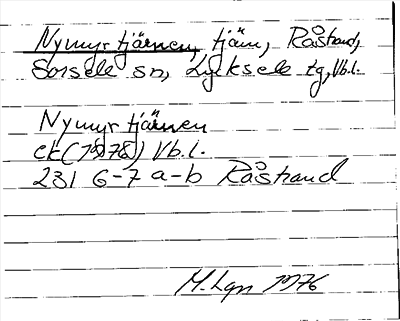 Nymyrtjärnen, tjärn, Råstrand,
Sorsele sn, Lycksele tg, Vb.l.
Nymyrtjärnen
ek (1978) Vb.l.
231 6-7 a-b Råstrand
M. Lgn 1976